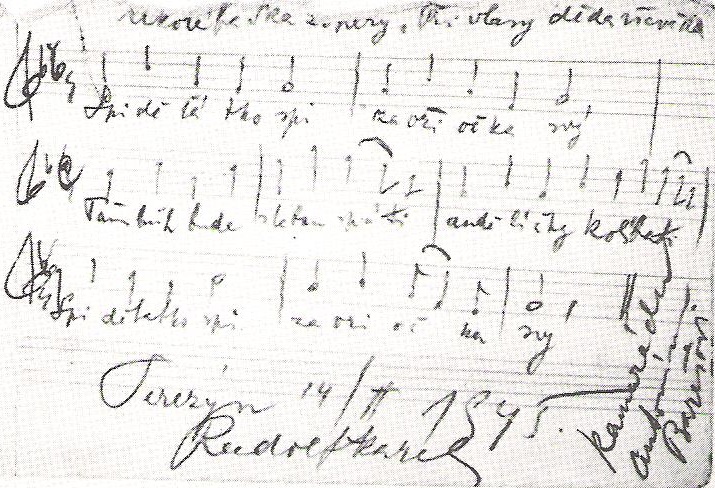 z opery „Tři vlasy děda vševěda
Spi dě ťá tko spi za vři oč ka svý
Bůh bude s tebou spáti andě líčky kolíbati
Spi děťátko spi za vři oč ka svý
Terezín 14/II 1945.
Rudolf Karel
kamarádu
Antonínu